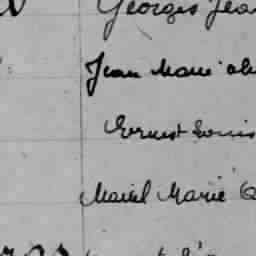 Georges Jean
Jean Marie
Ernest Louis
Marcel Marie